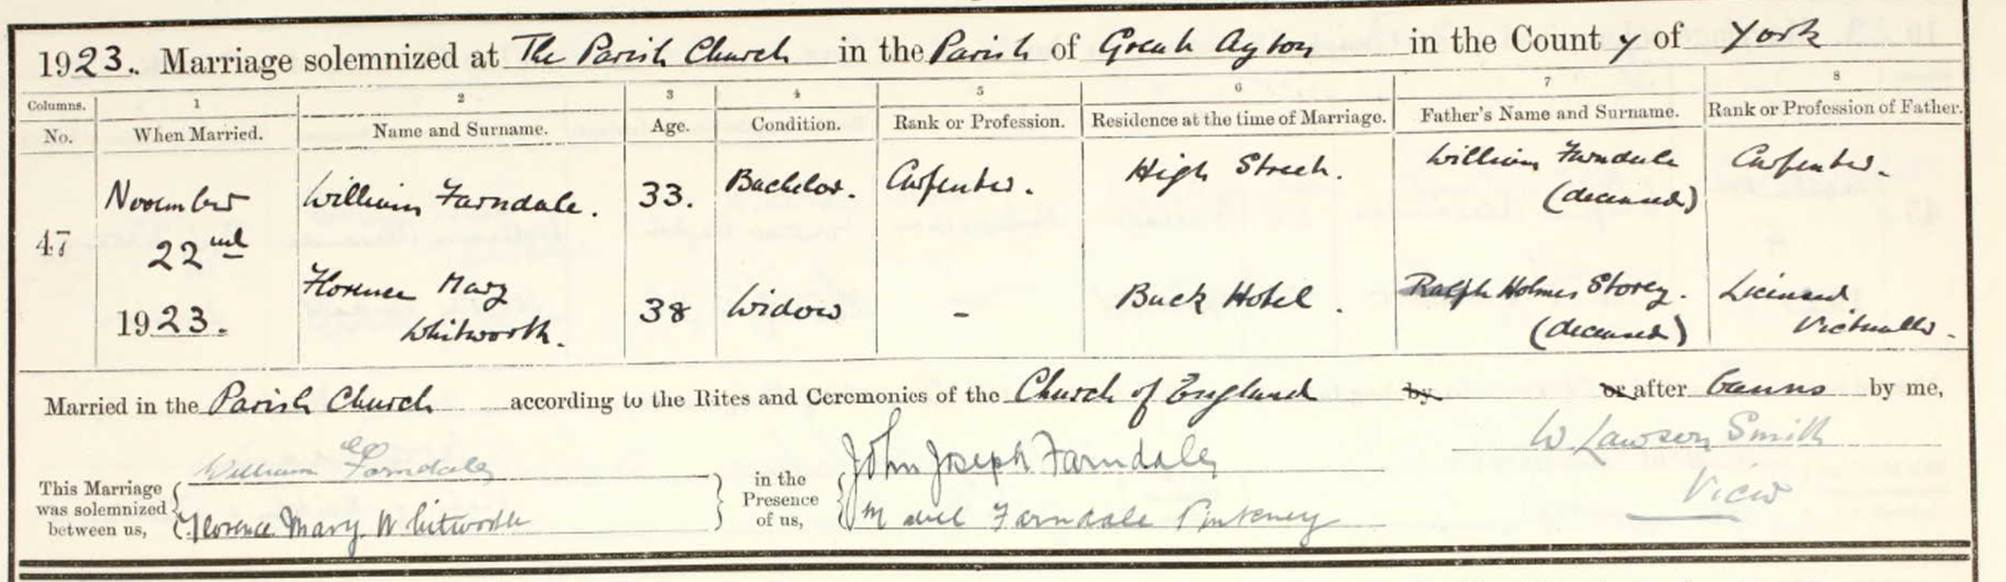 1923. Marriage solemnized at The Parish Church in the Parish of Great Ayton in the County of York
Columns. 1 2 3 4 5 6 7 8
No. When Married. Name and Surname. Age. Condition. Rank or Profession. Residence at the time of Marriage. Father's Name and Surname. Rank or Profession of Father.
47 November 22nd 1923. William Farndale. 33. Bachelor. Carpenter. High Street. William Farndale (deceased) Carpenter.
Florence Mary Whitworth. 38 Widow - Buck Hotel. Ralph Holmes Storey. (deceased) Licensed Victualler.
Married in the Parish Church according to the Rites and Ceremonies of the Church of England by or after Banns by me,
William Farndale John Joseph Farndale W Lawson Smith
This Marriage was solemnized between us, in the Presence of us,
Florence Mary Whitworth Farndale Pinkney